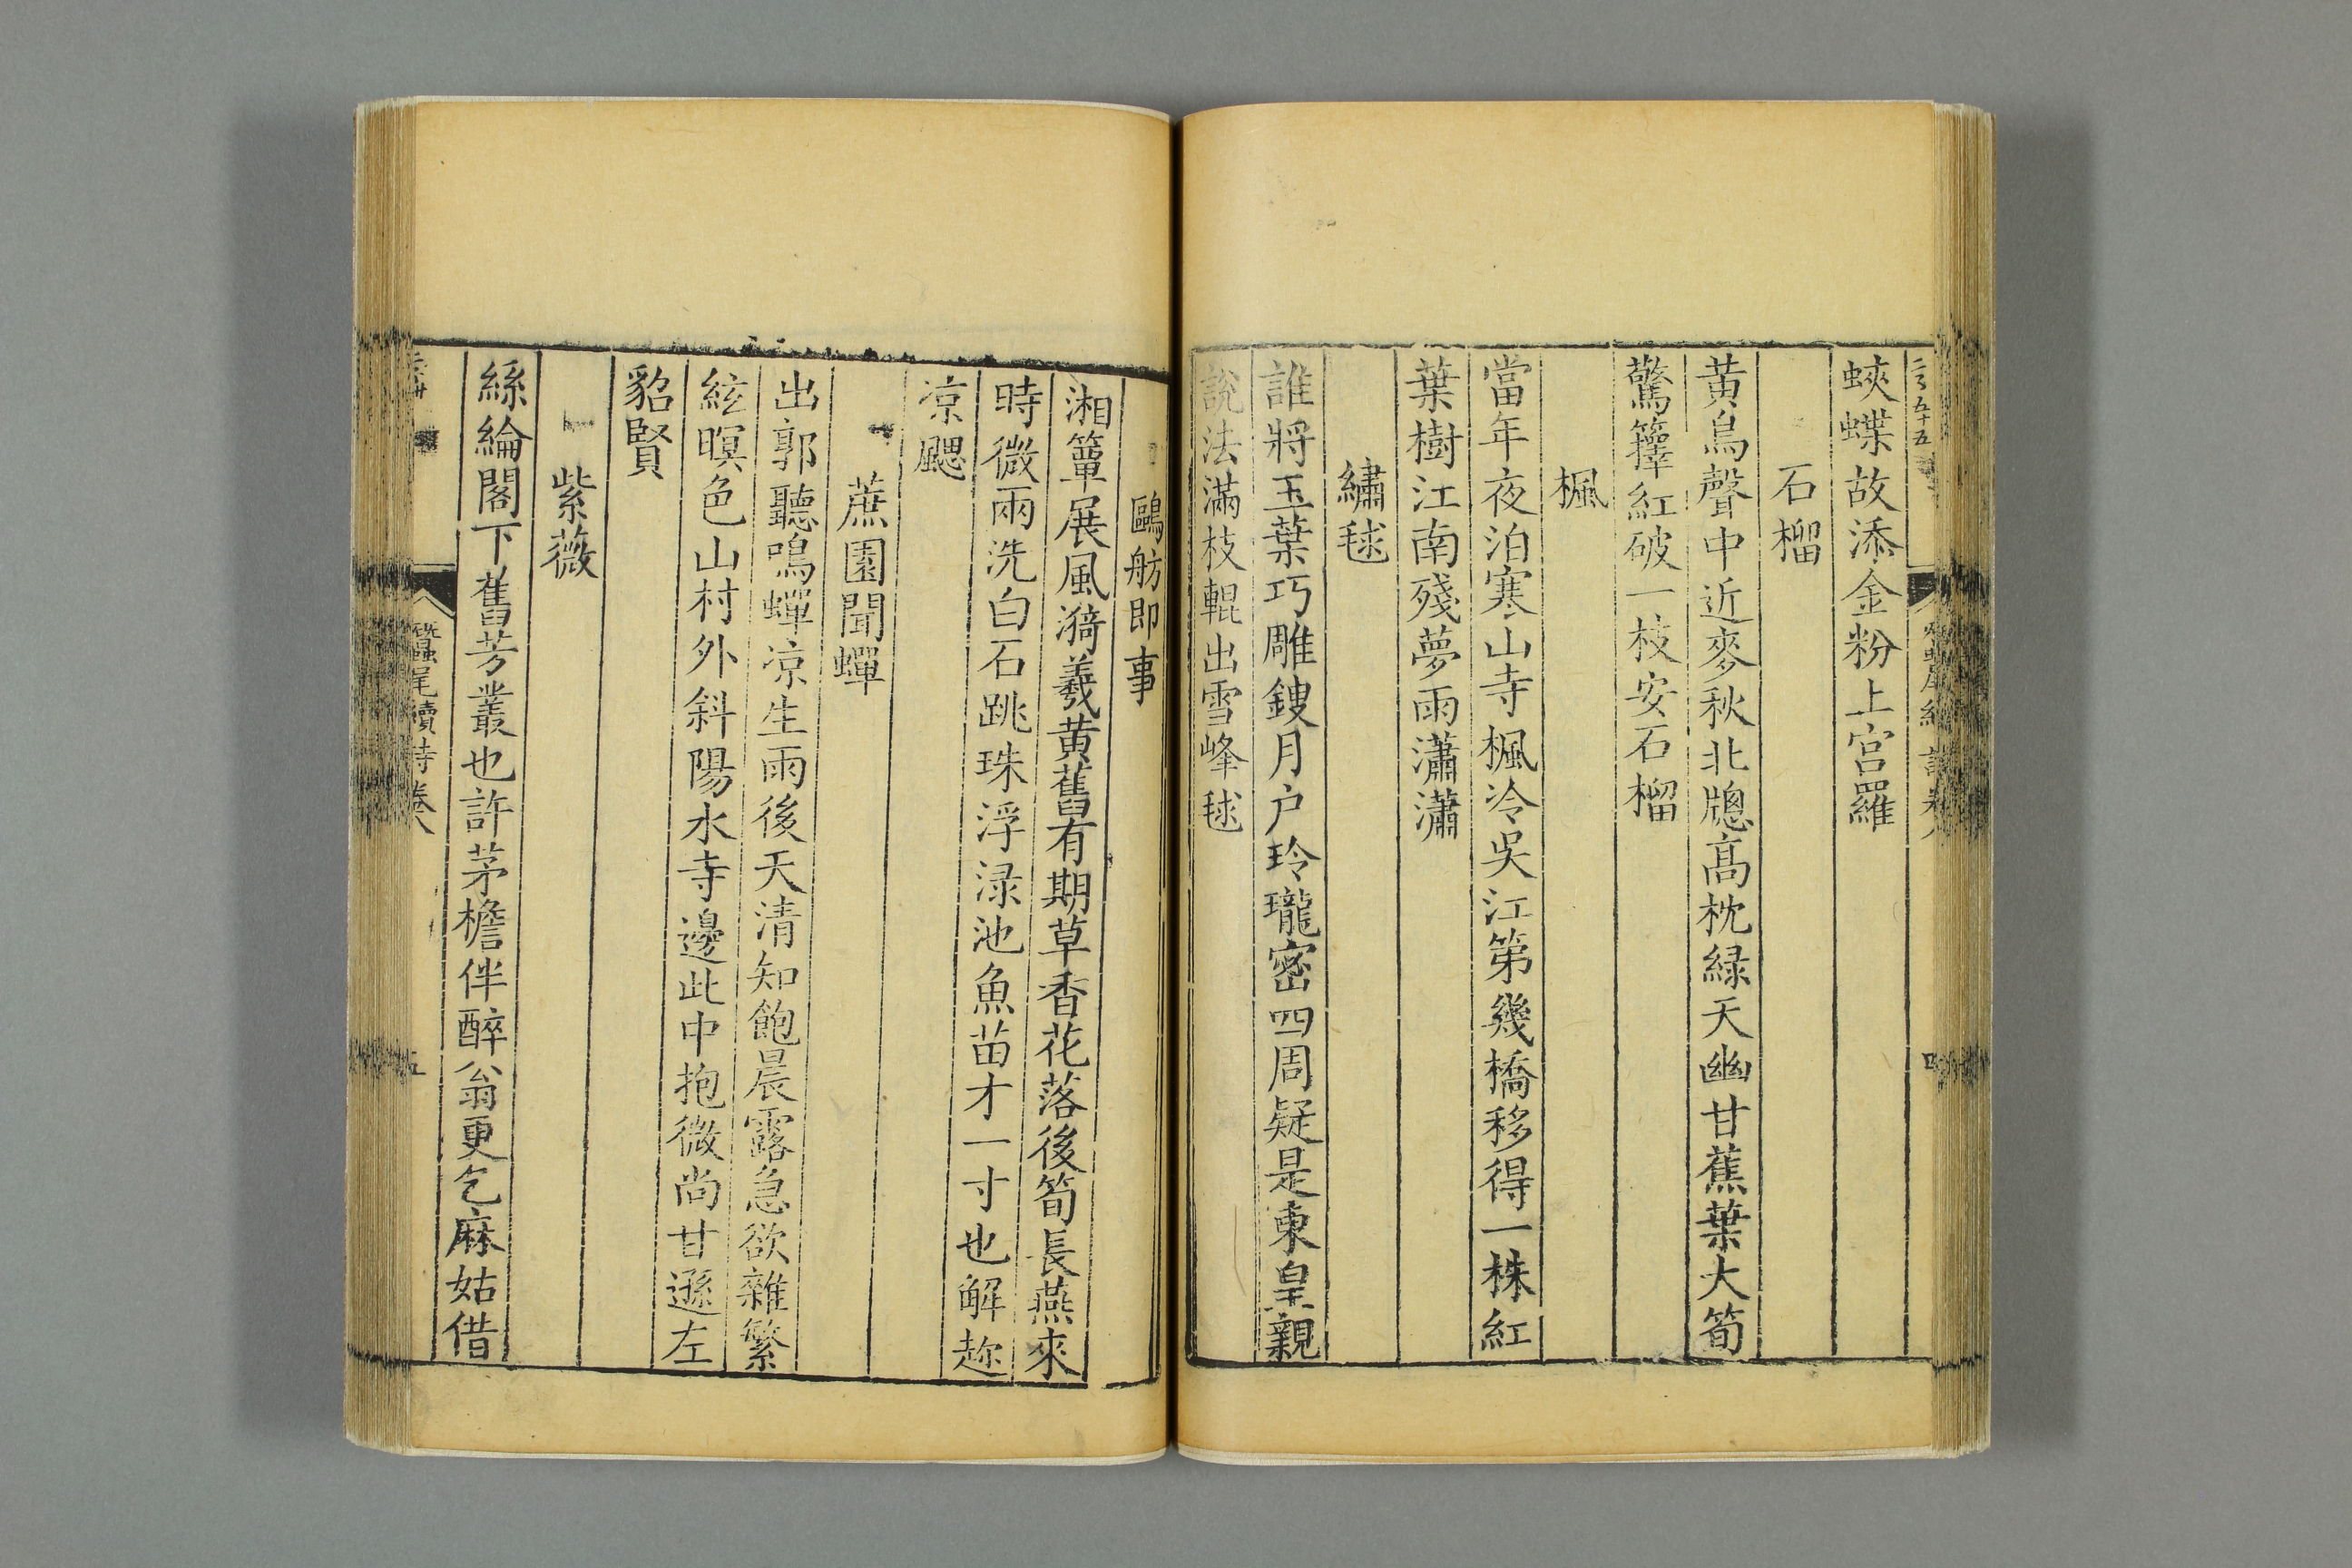 蛺蝶故添金粉上宫羅
石榴
黄鳥聲中近麥秋北牕高枕緑天幽甘蕉葉大筍
驚籜紅破一枝安石榴
楓
當年夜泊寒山寺楓冷吳江第幾橋移得一株紅
葉樹江南殘夢雨瀟瀟
繡毬
誰將玉葉巧雕鎪月户玲瓏密四周疑是東皇親
說法滿枝輥出雪峰毬
鷗舫即事
湘簟展風漪羲黄舊有期草香花落後筍長燕來
時微雨洗白石跳珠浮渌池魚苗才一寸也解趂
凉颸
蔗園聞蟬
出郭聽鳴蟬凉生雨後天清知飽晨露急欲雜繁
絃暝色山村外斜陽水寺邊此中抱微尚甘遜左
貂賢
紫薇
絲綸閣下舊芳叢也許茅檐伴醉翁更乞麻姑借
蠶尾續詩卷八